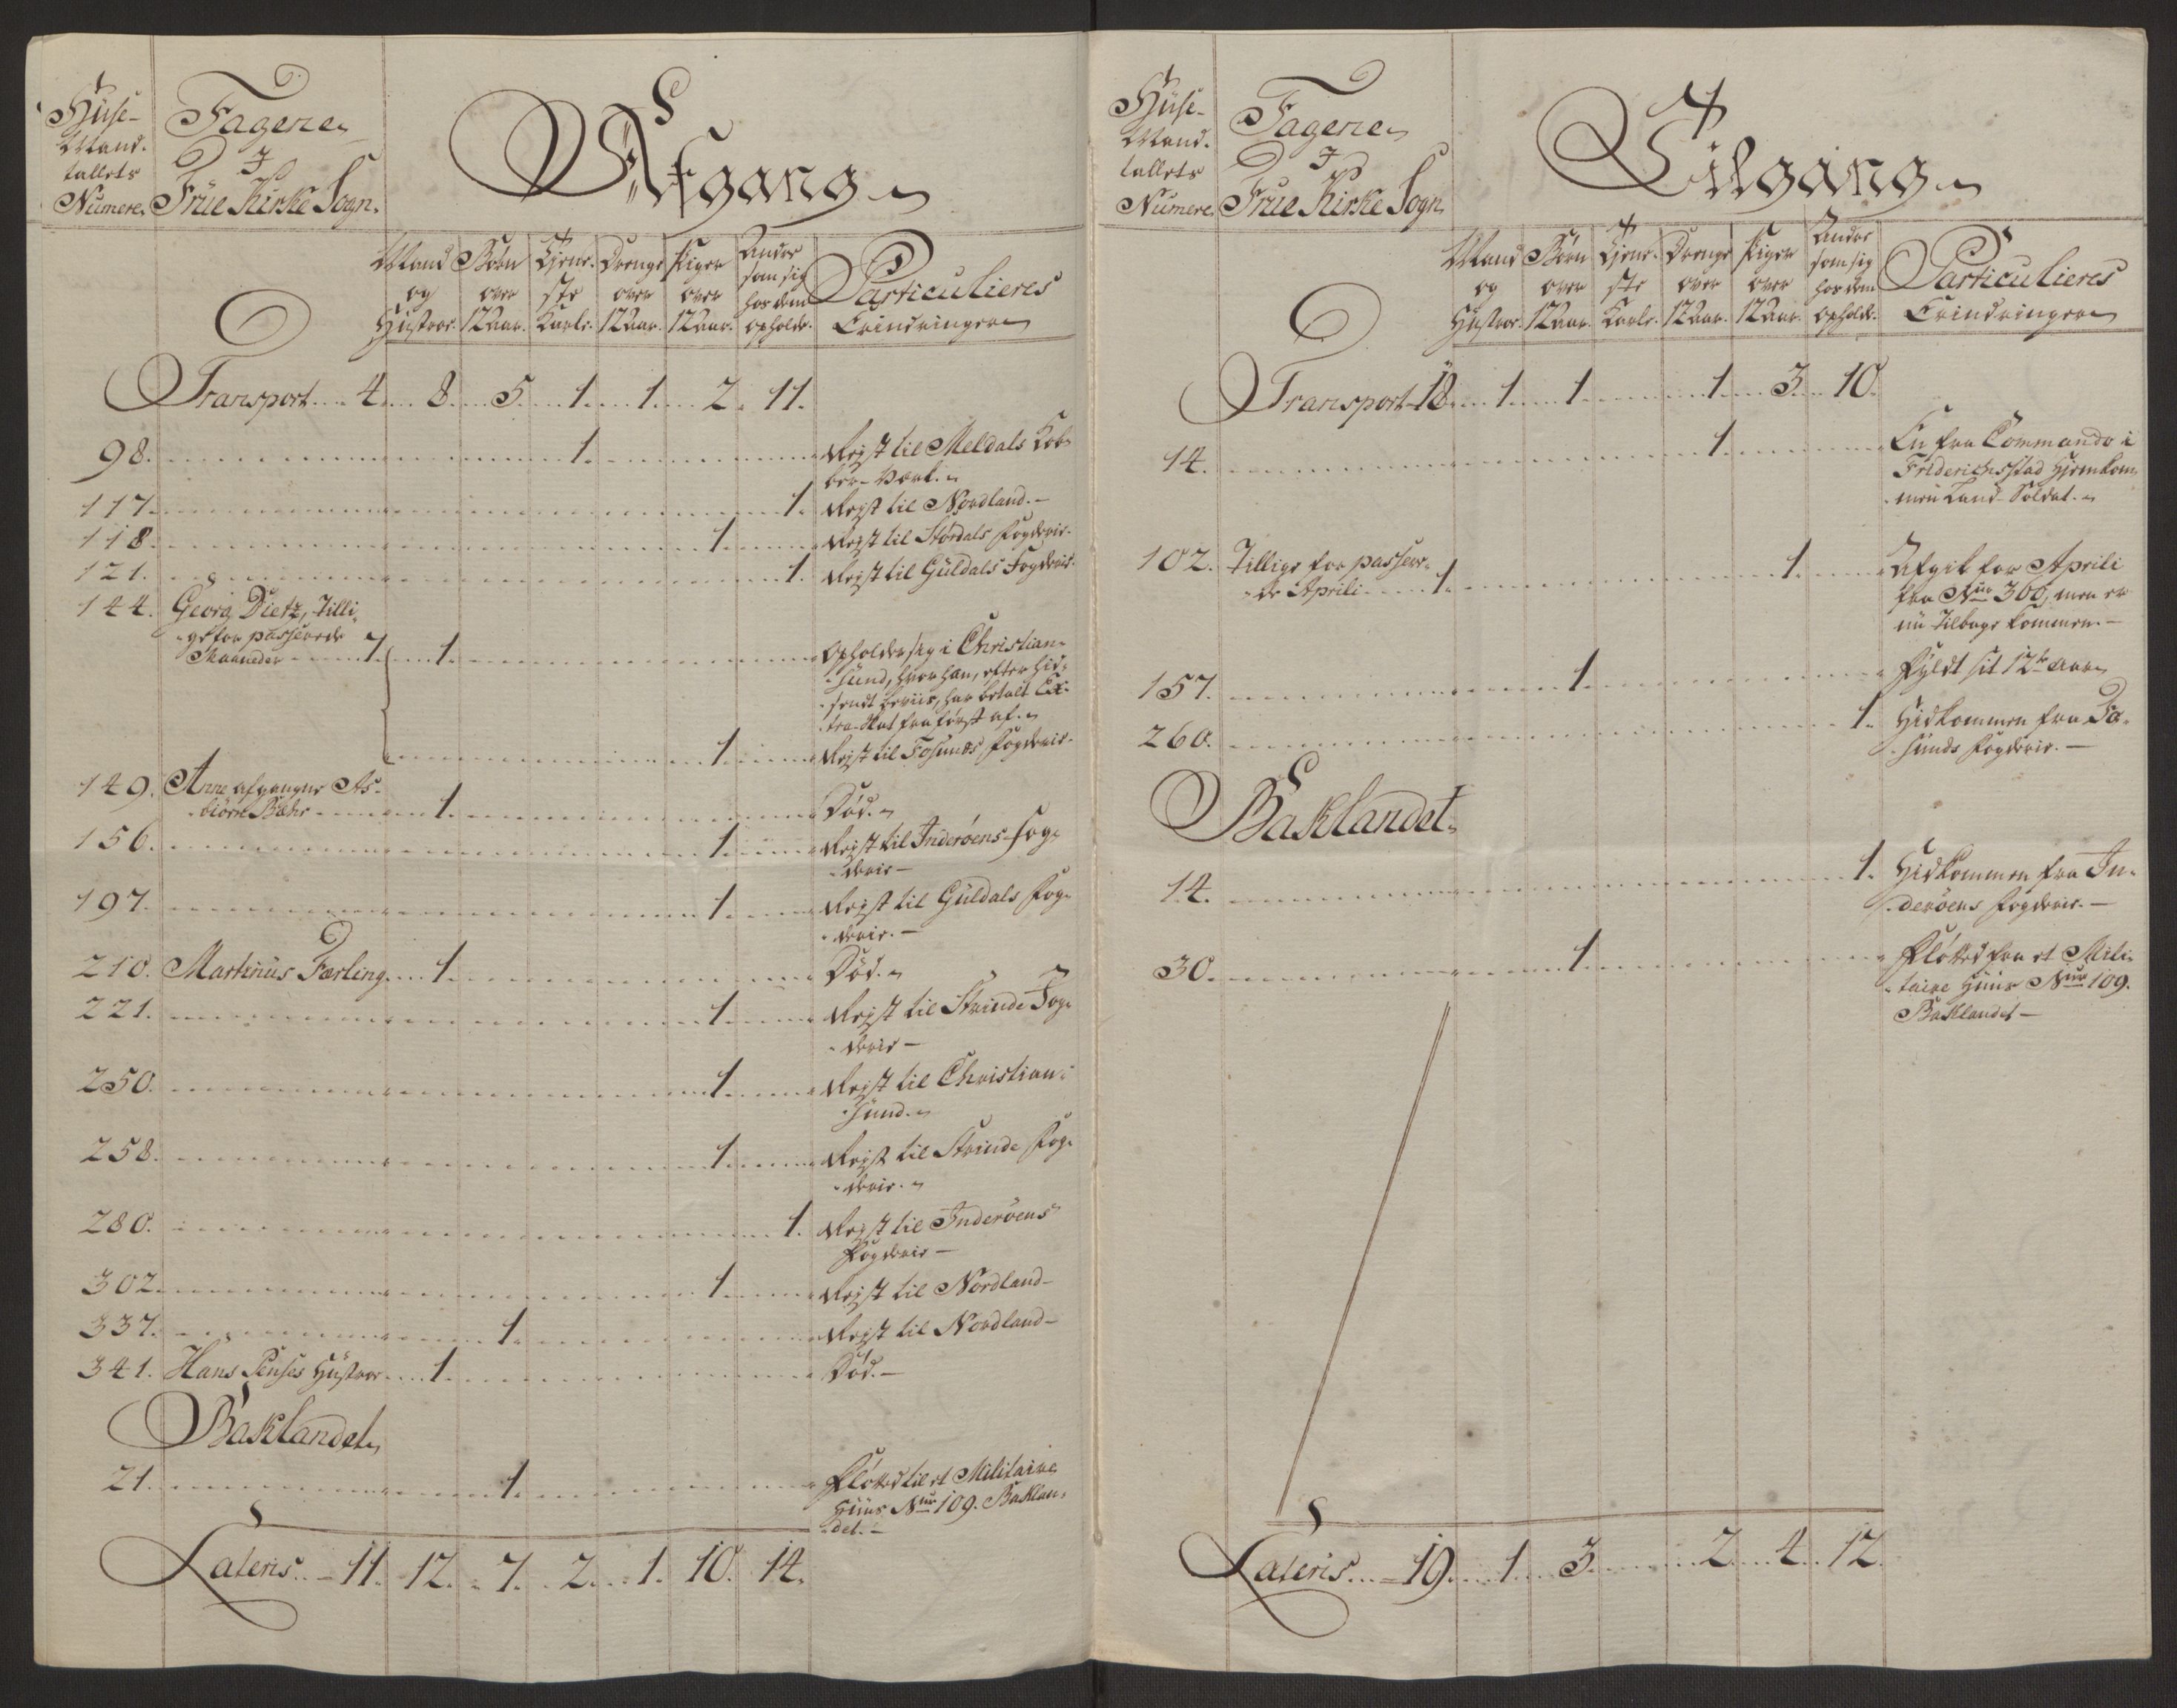 Huse-
Mand-
tallets
Numere.
Fagerne
I
Frue Kirke Sogn.
Afgang
Mand og Hustroe.
Børn over 12 Aar.
Tjene-ste Karle.
Drenge over 12 Aar.
Piger over 12 Aar.
Andre som sig hos dem opholde.
Particulieres Erindringer
Transport 4. 8. 5. 1. 1. 2. 11.
98. 1. Rejst til Meldals Kob-
ber-Værk.
117. 1. Rejst til Nordland.
118. 1. Rejst til Stördals Fogderie.
121. 1. Rejst til Guldals Fogderie.
144. Georg Dietz, Tilli-
ge for passerede
Maaneder 7. 1. Opholder sig i Christian-
sund, hvor han, efter hid-
sendt beviis, har betalt Ex-
tra-Skat fra først af.
1. Rejst til Fosunds Fogderie.
149. Anne afgangne As-
biørn Bæhr 1. Död.
156. 1. Rejst til Inderöens Fog-
derie
197. 1. Rejst til Guldals Fog-
derie.
210. Martinus Færling 1. Död.
221. 1. Rejst til Strinde Fog-
derie
250. 1. Rejst til Christian-
sund.
258. 1. Rejst til Strinde Fog-
derie.
280. 1. Rejst til Inderöens
Fogderie
302. 1. Rejst til Nordland
337. 1. Rejst til Nordland
341. Hans Jenses Hustroe 1. Död.
Baklandet
21. 1. Fløtted til et Militaire
Huus Nur 109. Baklan-
det.
Lateris 11. 12. 7. 2. 1. 10. 14.
Huse-
Mand-
tallets
Numere.
Fagerne
I
Frue Kirke Sogn
Tilgang
Mand og Hustroe.
Børn over 12 Aar.
Tjene-ste Karle.
Drenge over 12 Aar.
Piger over 12 Aar.
Andre som sig hos dem opholde.
Particulieres Erindringer
Transport 18. 1. 1. 1. 3. 10.
14. 1. En fra Commando i
Friderichsstad hjemkom-
men Land-Soldat.
102. Tillige for passere-
de Aprili 1. 1. Afgik for Aprili
fra Nur 360, men er
nu Tilbage kommen.
157. 1. Fyldt sit 12te Aar
260. 1. Hidkommen fra Fo-
sunds Fogderie.
Baklandet.
14. 1. Hidkommen fra In-
deröens Fogderie.
30. 1. Fløtted fra et Mili-
taire Huus Nur 109.
Baklandet
Lateris 19. 1. 3. 2. 4. 12.